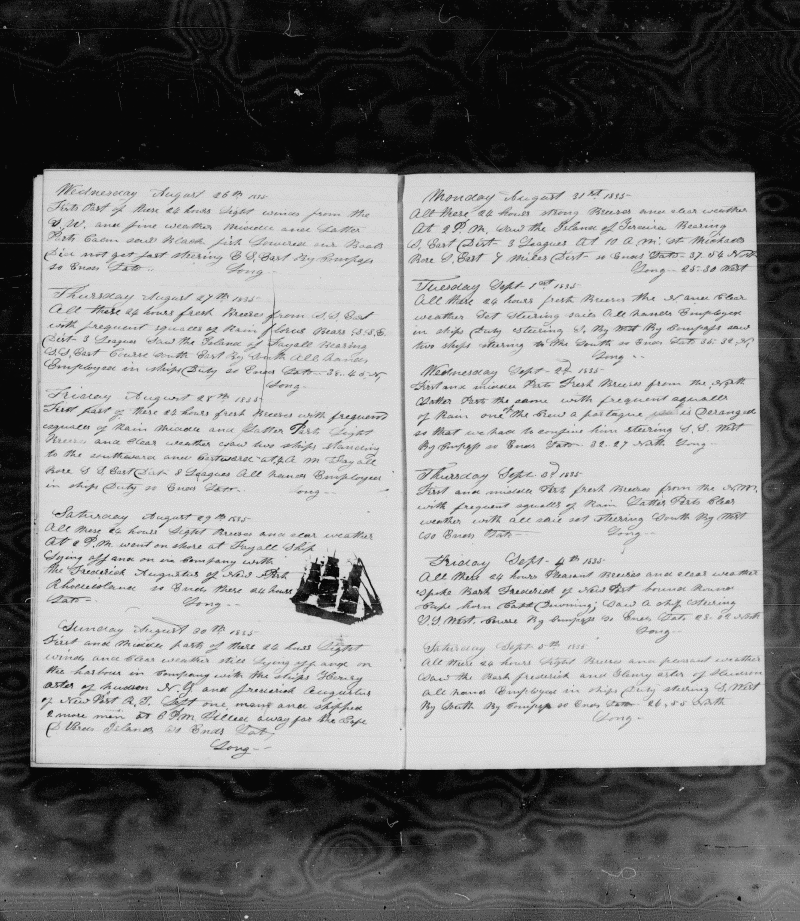 Wednesday August 26th 1835
Firts Part of these 24 hours Light winds from the
S.W. and fine weather Middle and Latter
Parts Calm saw Black fish Lowered our Boats
Did not get fast steering E.S. East By Compass
so Ends Lat - - Long - -
Thursday August 27th 1835
All these 24 hours fresh Breezes from S.S. East
with frequent squalls of Rain Flores Bears S.S.E.
Dist 3 Leagues Saw the Island of Fayall Bearing
S.S. East Course South East By South All hands
Employed in ships Duty so Ends Lat - - 38.45 N
Long - -
Friday August 28th 1835
First part of these 24 hours fresh Breezes with frequent
squalls of Rain Middle and Latter Parts Light
Breezes and Clear weather saw two ships standing
to the southward and Eastward at A M Fayall
Bore S S East Dist 8 Leagues All hands Employed
in ships Duty so Ends Lat - - Long - -
Saturday August 29th 1835
All these 24 hours Light Breezes and clear weather
At 2 P.M. went on shore at Fayall Ship
Lying off and on in Company with
the Frederick Augustus of New Port
Rhode Island so Ends these 24 hours
Lat - - Long - -
Sunday August 30th 1835
First and Middle parts of these 24 hours Light
winds and clear weather still Lying off and on
the harbour in Company with the ships Henry
Astor of Hudson N.Y and Frederick Augustus
of New Port R.I. Left one man and shipped
2 more men at 6 P.M filled away for the Cape
D Verds Islands so Ends Lat
Long - -
Monday August 31st 1835
All these 24 hours strong Breezes and clear weather
At 2 P.M. saw the Island of Terceira Bearing
S. East Dist 3 Leagues At 10 A.M. St Michaels
Bore S. East 7 Miles Dist so Ends Lat - 37.54 North
Long - 25.30 West
Tuesday Sept 1st 1835
All these 24 hours fresh Breezes the N and Clear
weather Set steering sails All hands Employed
in ships Duty steering S. By West By Compass saw
two ships steering to the South so Ends Lat 35.38, N,
Long - -
Wednesday Sept - 2d 1835
First and middle Parts Fresh Breezes from the North
Latter Parts the same with frequent squalls
of Rain one of the Crew a portague is Deranged
so that we had to confine him steering S.S. West
By Compass so Ends Lat - 32.27 North Long - -
Thursday Sept 3d 1835
First and middle Part fresh Breezes from the N.W.
with frequent squalls of Rain Latter Parts Clear
weather with all sail set steering South By West
so Ends Lat - - Long - -
Friday Sept - 4th 1835
All these 24 hours Pleasant Breezes and clear weather
spoke Bark Frederick of New Port bound Round
Cape horn Capt Downing, Saw a ship steering
S.S. West. Course By Compass so Ends Lat 28.02 North
Long - -
Saturday Sept - 5th 1835
All these 24 hours Light Breezes and pleasant weather
Saw the Bark frederick and Henry astor of Hudson
all hands Employed in ships Duty steering S. West
By South By Compass so Ends Lat - 26,55 North
Long - -